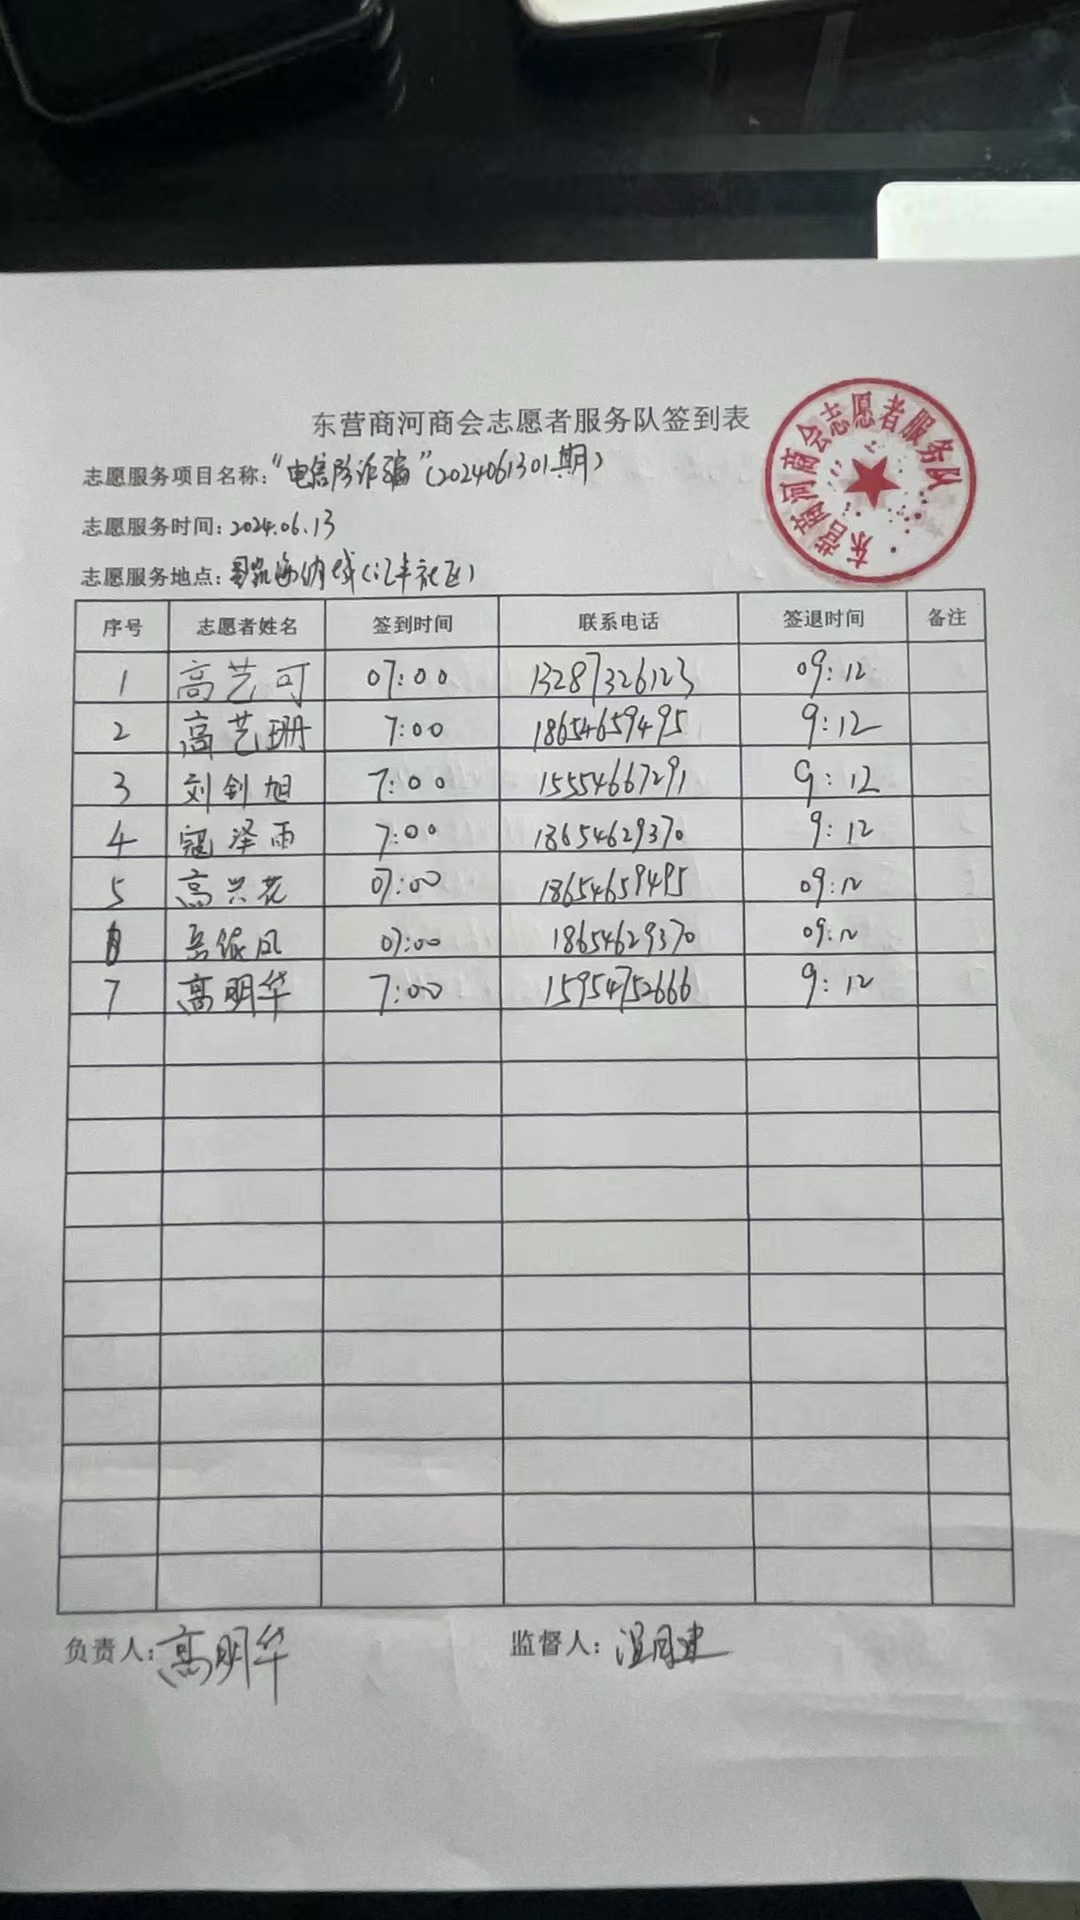 东营商河商会志愿者服务队签到表
东营商河商会志愿者服务队
志愿服务项目名称:“电信防诈骗”(2024061301期)
志愿服务时间:2024.06.13
志愿服务地点:纳城(汇丰社区)
序号 志愿者姓名 签到时间 联系电话 签退时间 备注
1 高艺可 07:00 13287326123 09:12
2 高艺珊 7:00 18654659495 9:12
3 刘钊旭 7:00 15554667291 9:12
4 寇泽雨 7:00 18654629370 9:12
5 高兴花 07:00 18654659495 09:12
6 07:00 18654629370 09:12
7 高明华 7:00 15954752666 9:12
负责人:高明华 监督人: